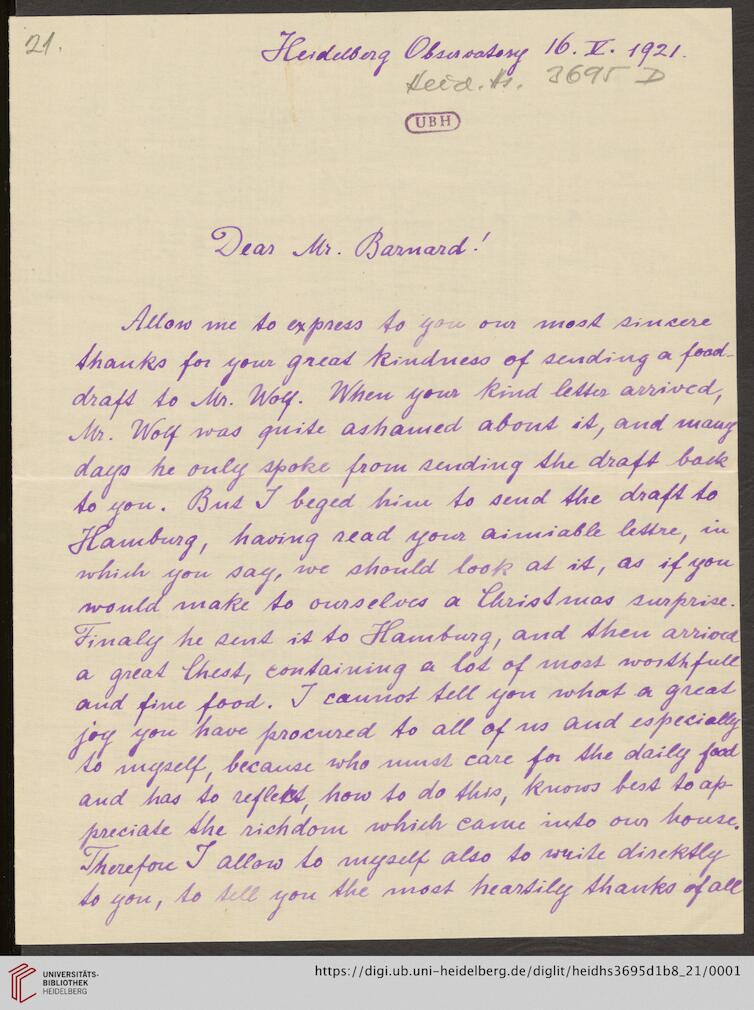 21.
Heidelberg Observatory 16. V. 1921.
Heid. Hs. 3695 D
UBH
Dear Mr. Barnard!
Allow me to express to you our most sincere
thanks for your great kindness of sending a food-
draft to Mr. Wolf. When your kind letter arrived,
Mr. Wolf was quite ashamed about it, and many
days he only spoke from sending the draft back
to you. But I beged him to send the draft to
Hamburg, having read your aimiable lettre, in
which you say, we should look at it, as if you
would make to ourselves a Christmas surprise.
Finaly he sent it to Hamburg, and then arrived
a great Chest, containing a lot of most worthfull
and fine food. I cannot tell you what a great
joy you have procured to all of us and especially
to myself, because who must care for the daily food
and has to reflekt, how to do this, knows best to ap-
preciate the richdom which came into our house.
Therefore I allow to myself also to write direktly
to you, to tell you the most heartily thanks of all
UNIVERSITÄTS-
BIBLIOTHEK
HEIDELBERG
https://digi.ub.uni-heidelberg.de/diglit/heidhs3695d1b8_21/0001